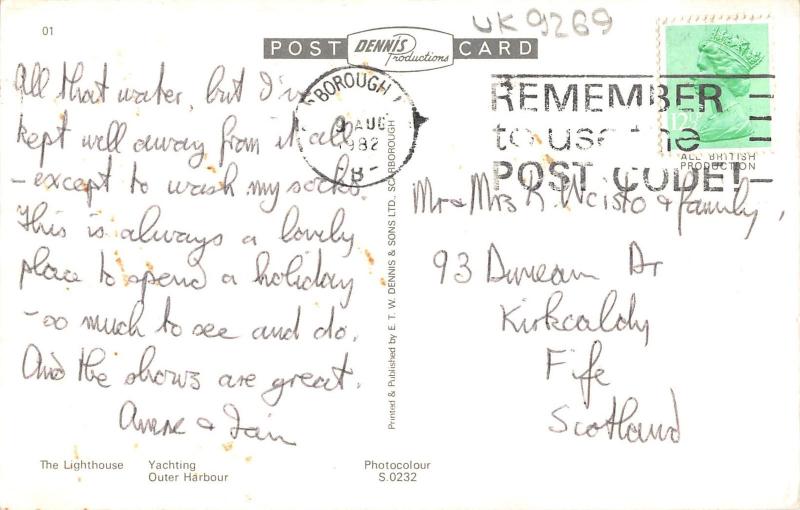 01
UK 9269
POST DENNIS Productions CARD
BOROUGH
9 AUG
1982
B
REMEMBER
to use the
POST CODE!
12½
ALL BRITISH
PRODUCTION
All that water, but I've
kept well away from it all
- except to wash my socks.
This is always a lovely
place to spend a holiday
- so much to see and do.
And the shows are great.
Anne & Iain
Printed & Published by E. T. W. DENNIS & SONS LTD., SCARBOROUGH
Mr & Mrs R. & family,
93 Duncan Dr
Kirkcaldy
Fife
Scotland
The Lighthouse Yachting
Outer Harbour
Photocolour
S.0232